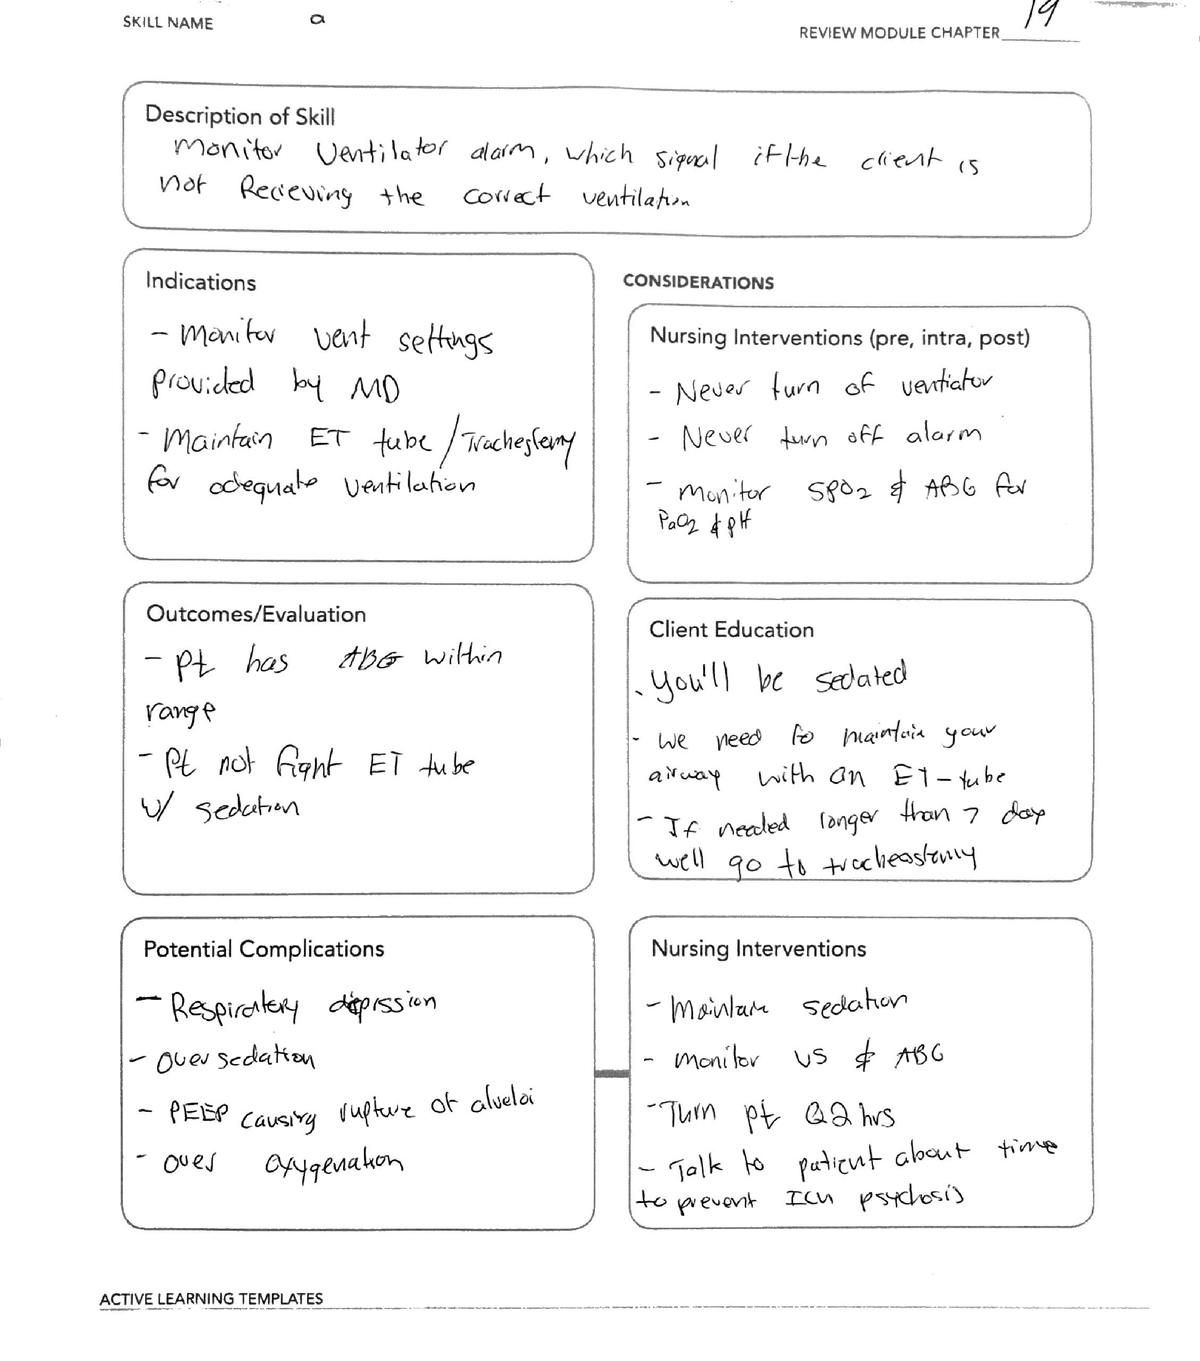 SKILL NAME a
REVIEW MODULE CHAPTER 19
Description of Skill
Monitor Ventilator alarm, which signal if the client is
not Recieving the correct ventilation
Indications
- Monitor vent settings
provided by MD
- Maintain ET tube / Trachestemy
for adequate ventilation
CONSIDERATIONS
Nursing Interventions (pre, intra, post)
- Never turn of ventiator
- Never turn off alarm
- Monitor SPO2 & ABG for
PaO2 & pH
Outcomes/Evaluation
- Pt has ABG within
range
- Pt not fight ET tube
w/ sedation
Client Education
. You'll be sedated
- we need to maintain your
airway with an ET-tube
- If needed longer than 7 day
well go to tracheostemy
Potential Complications
- Respiratory
- Over sedation
- PEEP causing rupture of alveloi
- over oxygenation
Nursing Interventions
- Maintain sedation
- Monitor VS & ABG
- Turn pt Q2 hrs
- Talk to patient about time
to prevent ICU psychosis
ACTIVE LEARNING TEMPLATES